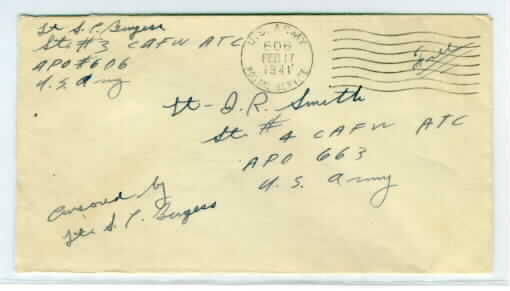 Lt S. P. Burgess
Sta #3 CAFW ATC
APO #606
U.S. Army
U.S. ARMY
606
FEB 17
1941
POSTAL SERVICE
Free
Lt - D. R. Smith
Sta # 4 CAFW ATC
APO 663
U. S. Army
Censored by
Lt S. P. Burgess